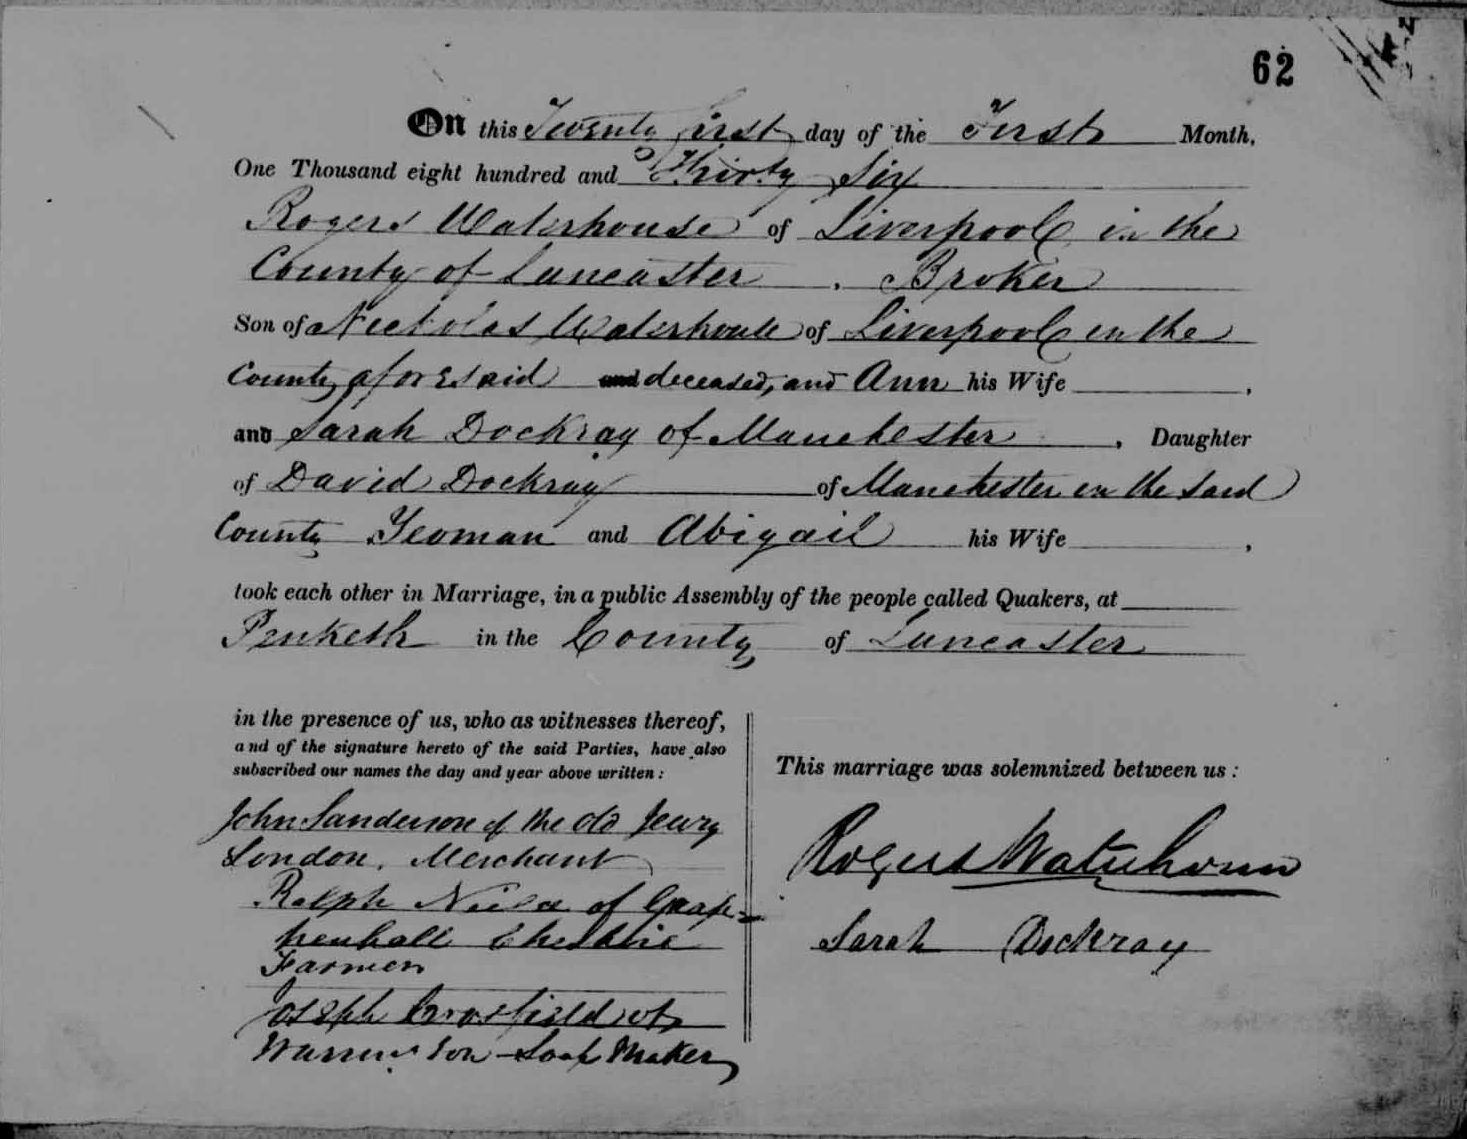 62
On this Twenty first day of the First Month,
One Thousand eight hundred and Thirty Six
Rogers Waterhouse of Liverpool in the
County of Lancaster . Broker
Son of Nicholas Waterhouse of Liverpool in the
County aforesaid and deceased, and Ann his Wife ,
and Sarah Dockray of Manchester , Daughter
of David Dockray of Manchester in the said
County Yeoman and Abigail his Wife ,
took each other in Marriage, in a public Assembly of the people called Quakers, at
Penketh in the County of Lancaster
in the presence of us, who as witnesses thereof,
and of the signature hereto of the said Parties, have also
subscribed our names the day and year above written :
John Sanderson of the Old Jewry
London, Merchant
Ralph of Grap=
penhall Cheshire
Farmer
Joseph Crosfield of
Warrington - Soap Maker
This marriage was solemnized between us :
Rogers Waterhouse
Sarah Dockray